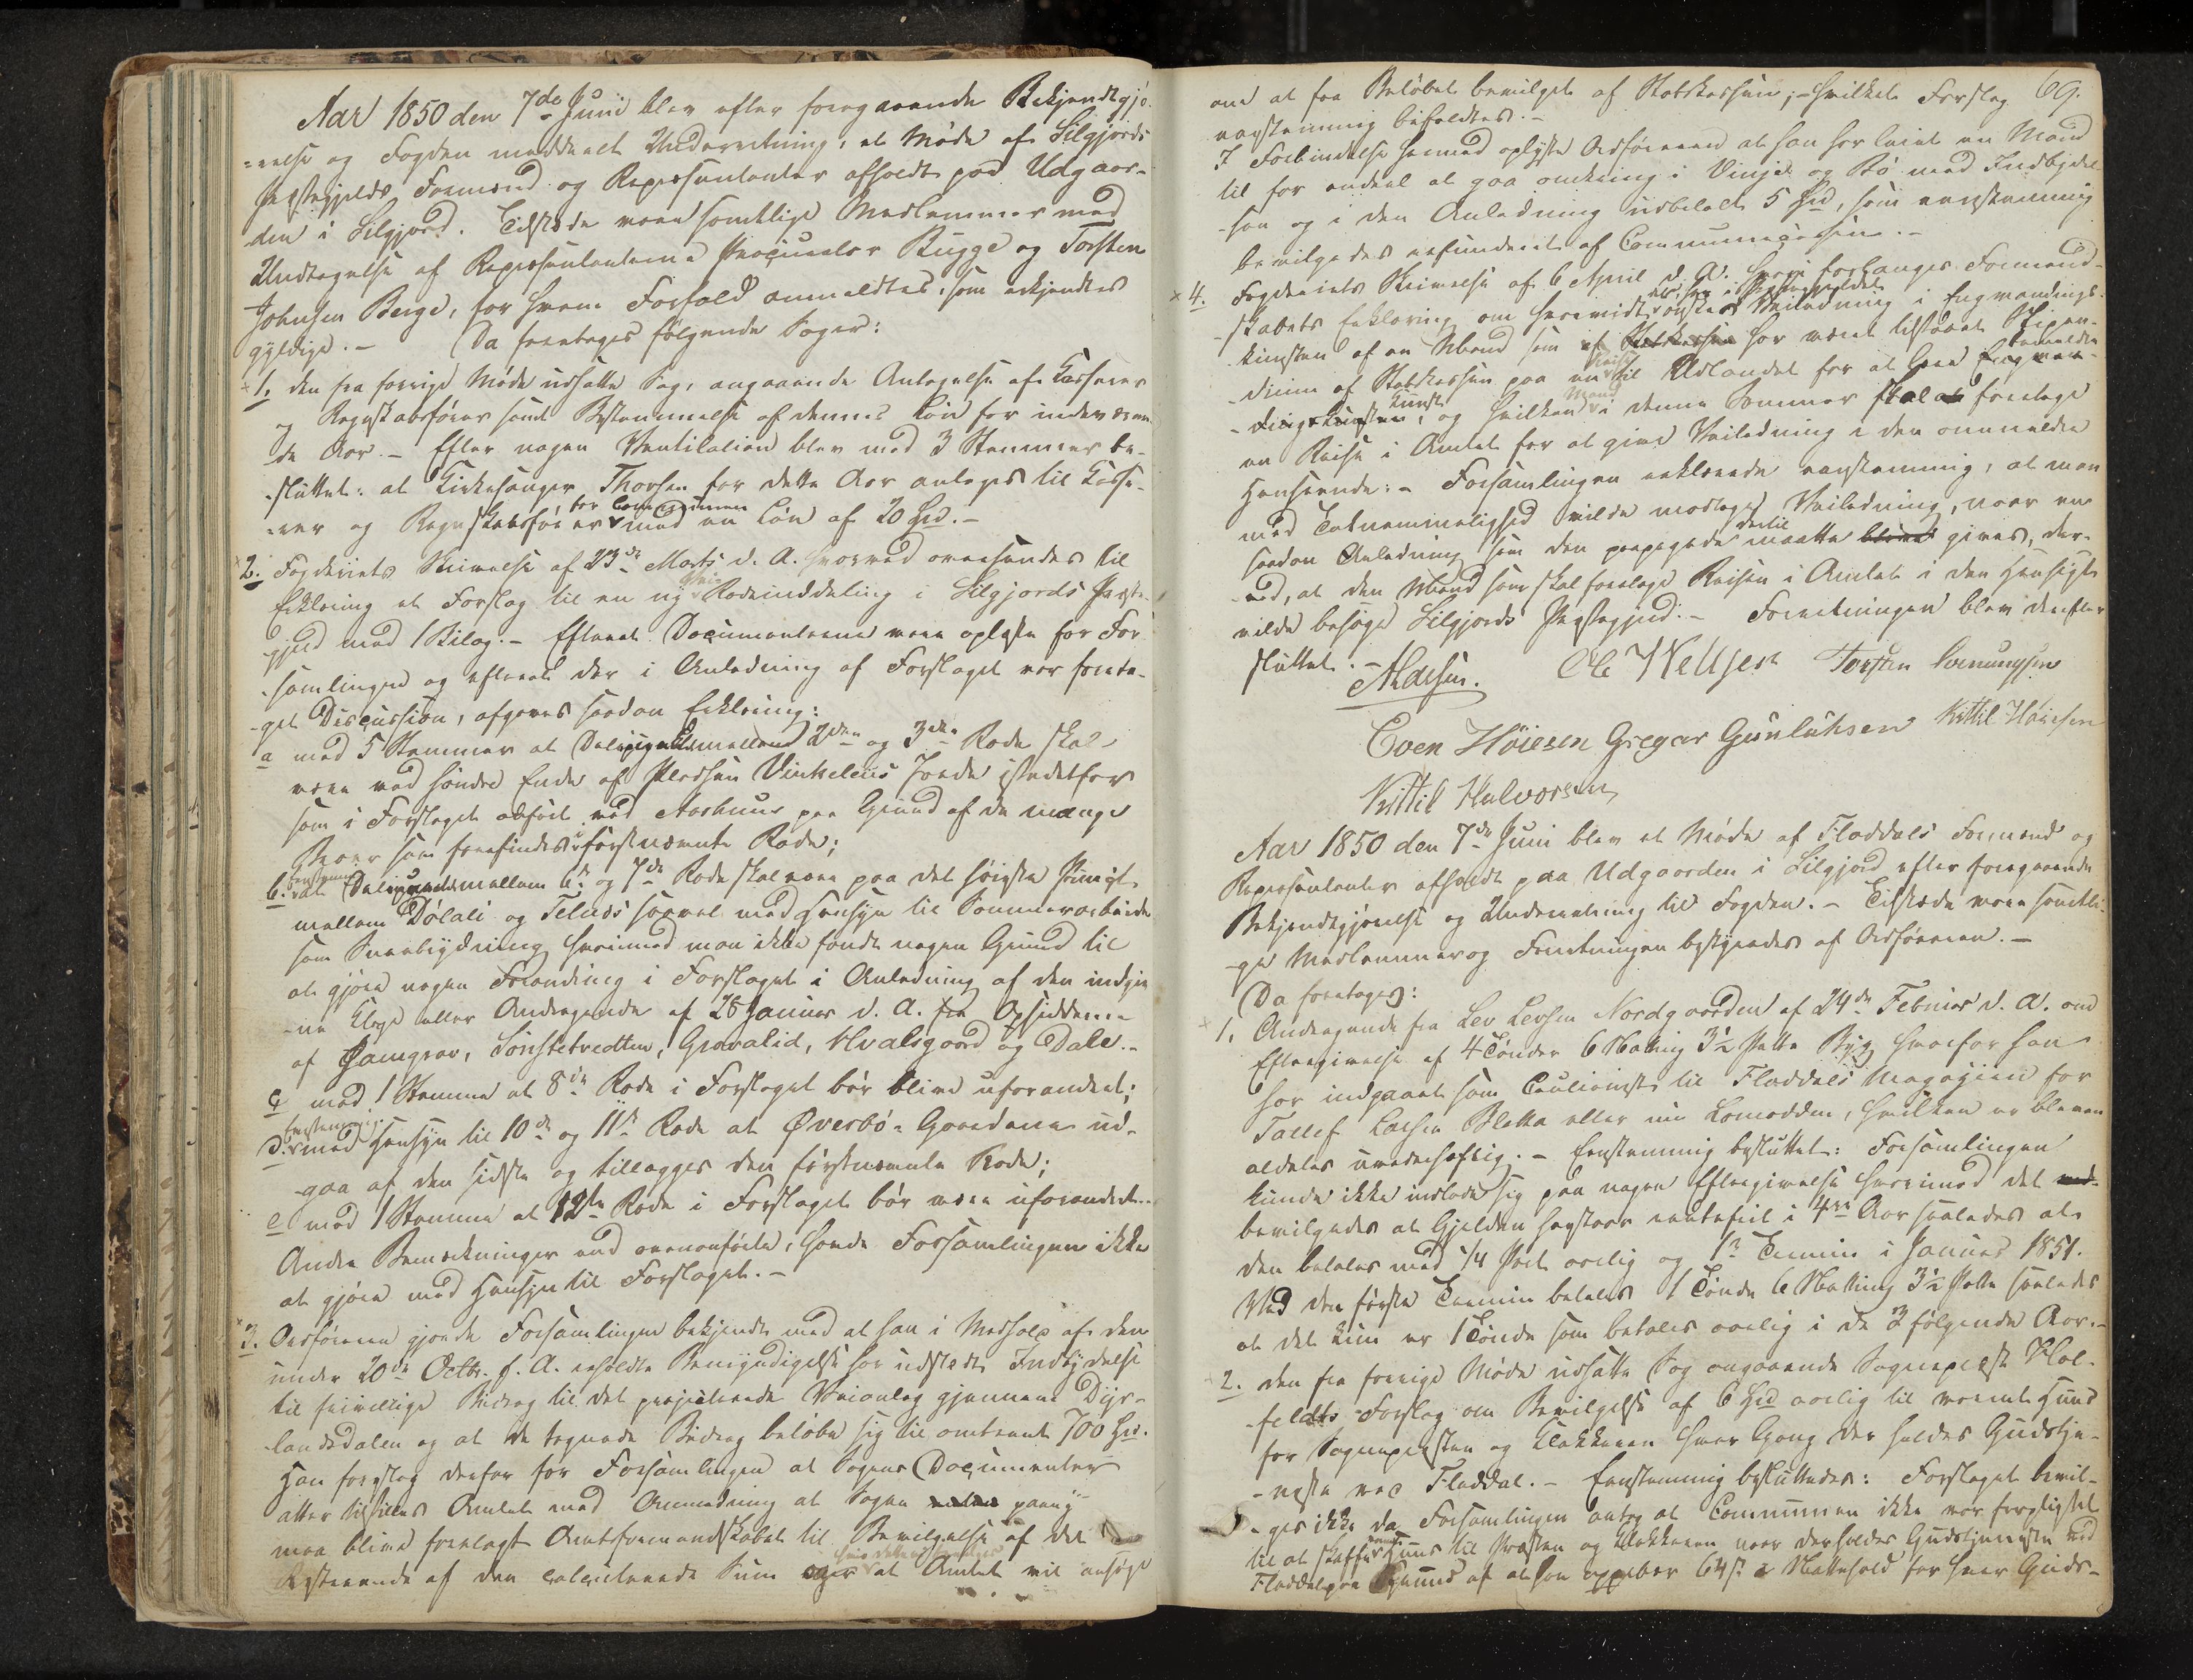 Aar 1850 den 7de Juni blev efter foregaaende Bekjendtgjø-
relse og Fogden meddeelt Underretning, et Møde af Silgjords
Præstegjelds Formænd og Repræsentanter afholdt paa Udgaar-
den i Silgjord. Tilstede vare samtlige Medlemmer med
Undtagelse af Repræsentanterne Procurator Bugge og Torsten
Johnsen Berge, for hvem Forfald anmeldtes, som erkjendtes
gyldige. – Da foretages følgende Sager:
1. den fra forrige Møde udsatte Sag, angaaende Antagelse af Casserer
og Regnskabsfører samt Bestemmelse af dennes Løn for indeværen-
de Aar. – Efter nogen Ventilation blev med 3 Stemmer be-
sluttet: at Kirkesanger Thorsen for dette Aar antages til Casse-
rer og Regnskabsfører for Communen med en Løn af 20 Spd. –
2. Fogderiets Skrivelse af 23de Marts d. A. hvorved oversendes til
Erklæring et Forslag til en ny Vei-Rodeinddeling i Silgjords Præste-
gjeld med 1 Bilag. – Efterat Documenterne vare oplæste for For-
samlingen og efterat der i Anledning af Forslaget var foreta-
get Discussion, afgaves saadan Erklæring:
a med 5 Stemmer at Delingen mellem 2den og 3die Rode skal
være ved søndre Ende af Pladsen Vinkeleiis Jorde istedetfor
som i Forslaget anført ved Aarhuus paa Grund af de mange
Broer som forefindes i førstnævnte Rode;
b. Eenstemmig at Delingen mellem 6te og 7de Rode skal være paa det høieste Punct
mellem Dølali og Telnes saavel med Hensyn til Sommerarbeide
som Sneebrydning hvorimod man ikke fandt nogen Grund til
at gjøre nogen Forandring i Forslaget i Anledning af den indgiv-
ne Klage eller Andragende af 28 Januar d. A. fra Opsidderne
af Hamgrav, Sønstetvedten, Gravalid, Hvalsgaard og Dale. –
c med 1 Stemme at 8de Rode i Forslaget bør blive uforandret;
d. Eenstemmig med Hensyn til 10de og 11te Rode at Øverbø-Gaardene ud-
gaa af den sidste og tillægges den førstnævnte Rode;
e med 1 Stemme at 12te Rode i Forslaget bør være uforandret. –
Andre Bemærkninger end ovenanførte, havde Forsamlingen ikke
at gjøre med Hensyn til Forslaget. –
3. Ordføreren gjorde Forsamlingen bekjendt med at han i Medhold af den
under 20de Octbr. f. A. erholdte Bemyndigelse har udstedt Indbydelse
til frivillige Bidrag til det projecterede Veianlæg gjennem Dyr-
landsdalen og at de tegnede Bidrag beløbe sig til omtrent 700 Spd.
Han foreslog derfor for Forsamlingen at Sagens Documenter
atter tilstilles Amtet med Anmodning at Sagen paany
maa blive forelagt Amtsformandskabet til Bevilgelse af det
Resterende af den calculerede Sum og at Amtet vil ansøge
69.
om at faa Beløbet bevilget af Statskassen; – hvilket Forslag
eenstemmig bifaldtes. –
I Forbindelse hermed oplyste Ordføreren at han har leiet en Mand
til for endeel at gaa omkring i Vinje og Bø med Indbydel-
sen og i den Anledning udbetalt 5 Spd, som eenstemmig
bevilgedes refunderet af Communecassen. –
4. Fogderiets Skrivelse af 6 April d. A. hvori forlanges Formand-
skabets Erklæring om hvorvidt der her i Præstegjeldet ønskes Veiledning i Engvandings-
kunsten af en Mand som har været tilstaaet Stipen-
dium af Statskassen paa en Reise til Udlandet for at lære bemeldte Engvan-
dingskunst, og hvilken Mand i denne Sommer skal foretage
en Reise i Amtet for at give Veiledning i den anmeldte
Henseende: – Forsamlingen erklærede eenstemmig, at man
med Taknemmelighed vilde modtage Veiledning, naar en
saadan Anledning som den paapegede dertil maatte gives, der-
ved, at den Mand som skal foretage Reisen i Amtet i den Hensigt
vilde besøge Silgjords Præstegjeld. – Forretningen blev derefter
sluttet. –
Ole K Ellesen Torsten Svenungsen
Even Høiesen Gregar Gunluksen Kittil Høiesen
Kittil Halvorsen
Aar 1850 den 7de Juni blev et Møde af Fladdals Formænd og
Repræsentanter afholdt paa Udgaarden i Silgjord efter foregaaende
Bekjendtgjørelse og Underretning til Fogden. – Tilstede vare samtli-
ge Medlemmer og Forretningen bestyredes af Ordføreren. –
Da foretages:
1. Andragende fra Lev Levsen Nordgaarden af 24de Februar d. A. om
Eftergivelse af 4 Tønder 6 Sætting 3½ Potte Byg hvorfor han
har indgaaet som Cautionist til Fladdals Magazin for
Tallef Larsen Sletta eller nu Lomodden, hvilken er bleven
aldeles uvederhæftig. – Eenstemmig besluttet: Forsamlingen
kunde ikke indlade sig paa nogen Eftergivelse hvorimod det
bevilgedes at Gjelden henstaar rentefrit i 4re Aar saaledes at
den betales med 1/4 Part aarlig og 1ste Termin i Januar 1851.
Ved den første Termin betales 1 Tønde 6 Sætting 3½ Potte saaledes
at det kun er 1 Tønde som betales aarlig i de 3 følgende Aar. –
2. den fra forrige Møde udsatte Sag angaaende Sognepræst Hol-
feldts Forslag om Bevilgelse af 6 Spd aarlig til varmt Huus
for Sognepræsten og Klokkeren hver Gang der holdes Gudstje-
neste ved Fladdal. – Eenstemmig besluttedes: Forslaget bevil-
ges ikke da Forsamlingen antog at Communen ikke var forpligtet
til at skaffe varmt Huus til Præsten og Klokkeren naar der holdes Gudstjeneste ved
Fladdal paa Grund af at han oppebær 64 s. i Nattehold for hver Guds-